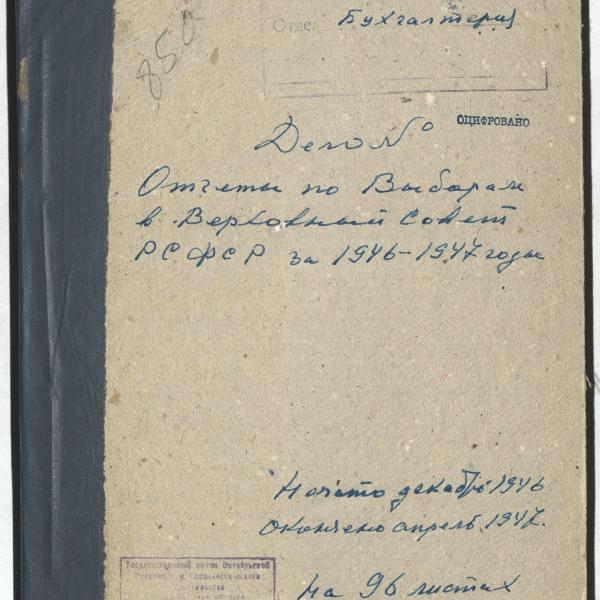 Отдел Бухгалтерия
850
ОЦИФРОВАНО
Дело №
Отчеты по Выборам
в Верховный Совет
РСФСР за 1946-1947 годы
Начато декабрь 1946
Окончено апрель 1947.
Государственный архив Октябрьской
Революции и Социалистического
на 96 листах